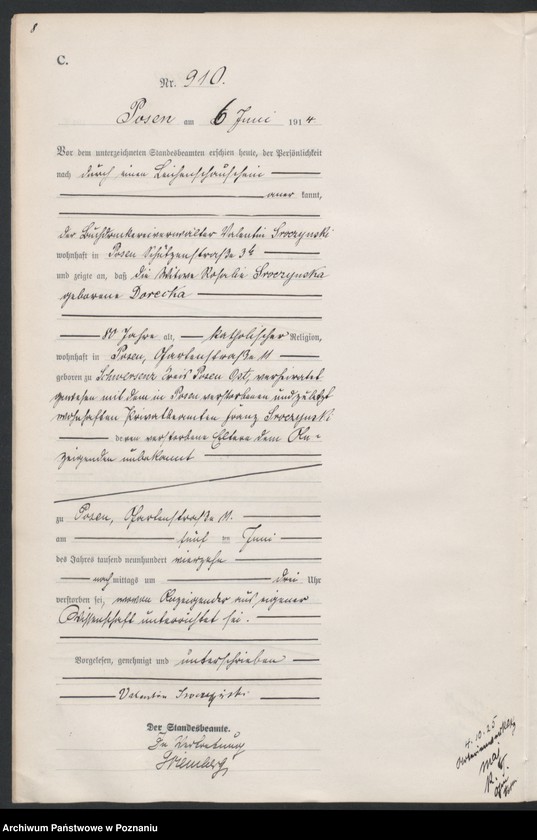 8
C.
Nr. 910.
Posen am 6 Juni 1914
Vor dem unterzeichneten Standesbeamten erschien heute, der Persönlichkeit
nach durch einen Leichenschauschein
aner kannt,
der Buchdruckereiverwalter Valentin Sroczynski
wohnhaft in Posen Schützenstraße
und zeigte an, daß die Witwe Rosalie Sroczynska
geborene Dorecka
80 Jahre alt, katholischer Religion,
wohnhaft in Posen, Gartenstraße 11
geboren zu Schwersenz Kreis Posen Ost, verheiratet
gewesen mit dem in Posen verstorbenen und zuletzt
wohnhaften Privatbeamten Franz Sroczynski
deren verstorbene Eltern dem An=
zeigenden unbekannt
zu Posen, Gartenstraße 11.
am fünf ten Juni
des Jahres tausend neunhundert vierzehn
nachmittags um drei Uhr
verstorben sei, wovon Anzeigender aus eigener
Wissenschaft unterrichtet sei.
Vorgelesen, genehmigt und unterschrieben
Valentin Sroczyński
Der Standesbeamte.
In Vertretung
4.10.25
Archiwum Państwowe w Poznaniu